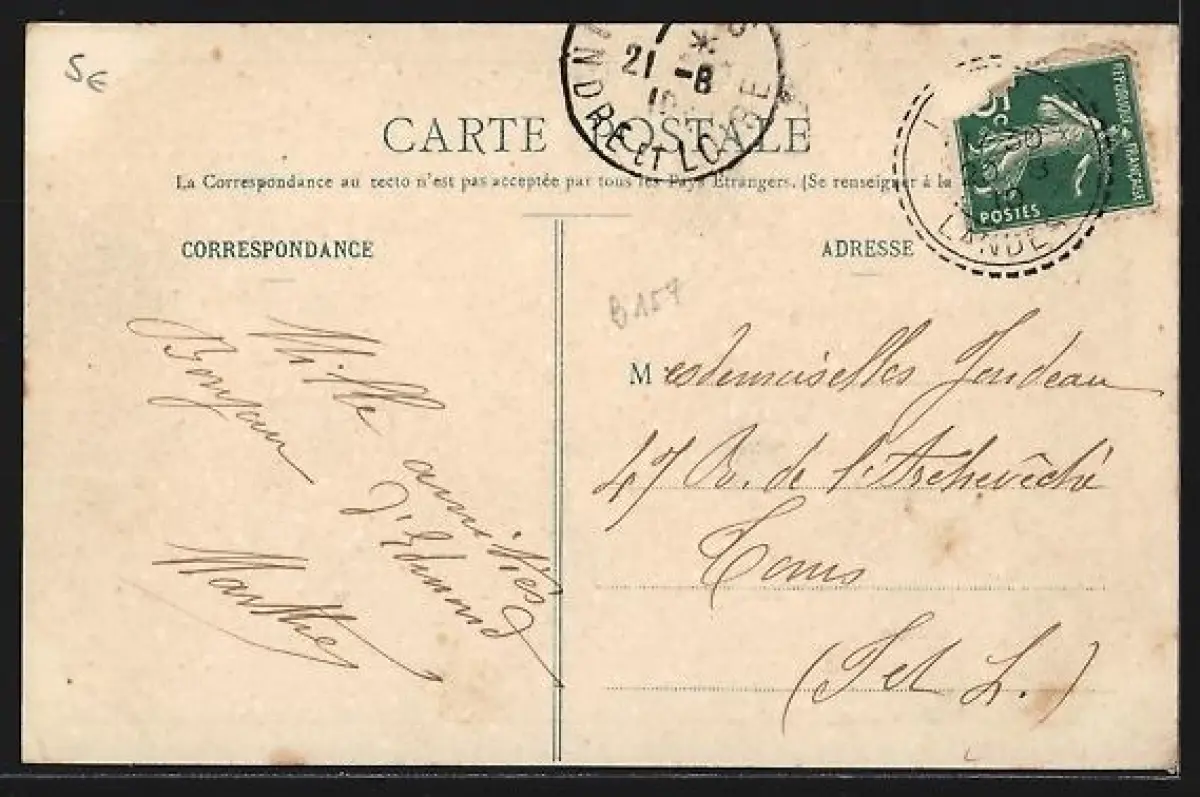 5€
21 -8
INDRE ET LOIRE
CARTE POSTALE
La Correspondance au recto n'est pas acceptée par tous les Pays Étrangers. (Se renseigner à la
RÉPUBLIQUE FRANÇAISE
5c
POSTES
LANDES
CORRESPONDANCE
ADRESSE
B157
Mille amitiés
Bonjour d'Edmond
Marthe
Mesdemoiselles Jendeau
47 R. de l'Archevêché
Tours
(I et L.)